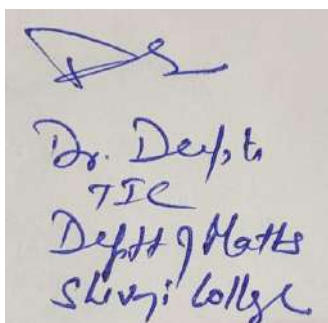 Dr. Deepti
TIC
Deptt of Maths
Shivaji College